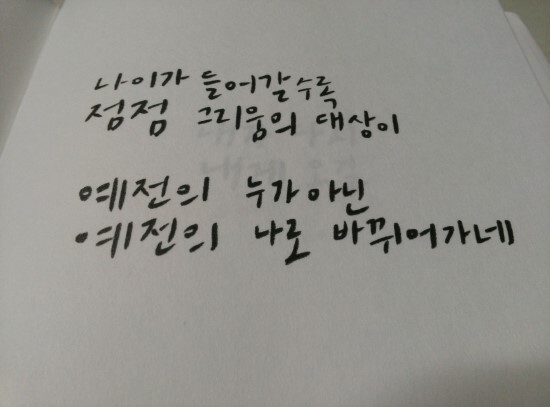 나이가 들어갈수록
점점 그리움의 대상이
예전의 누가아닌
예전의 나로 바뀌어가네